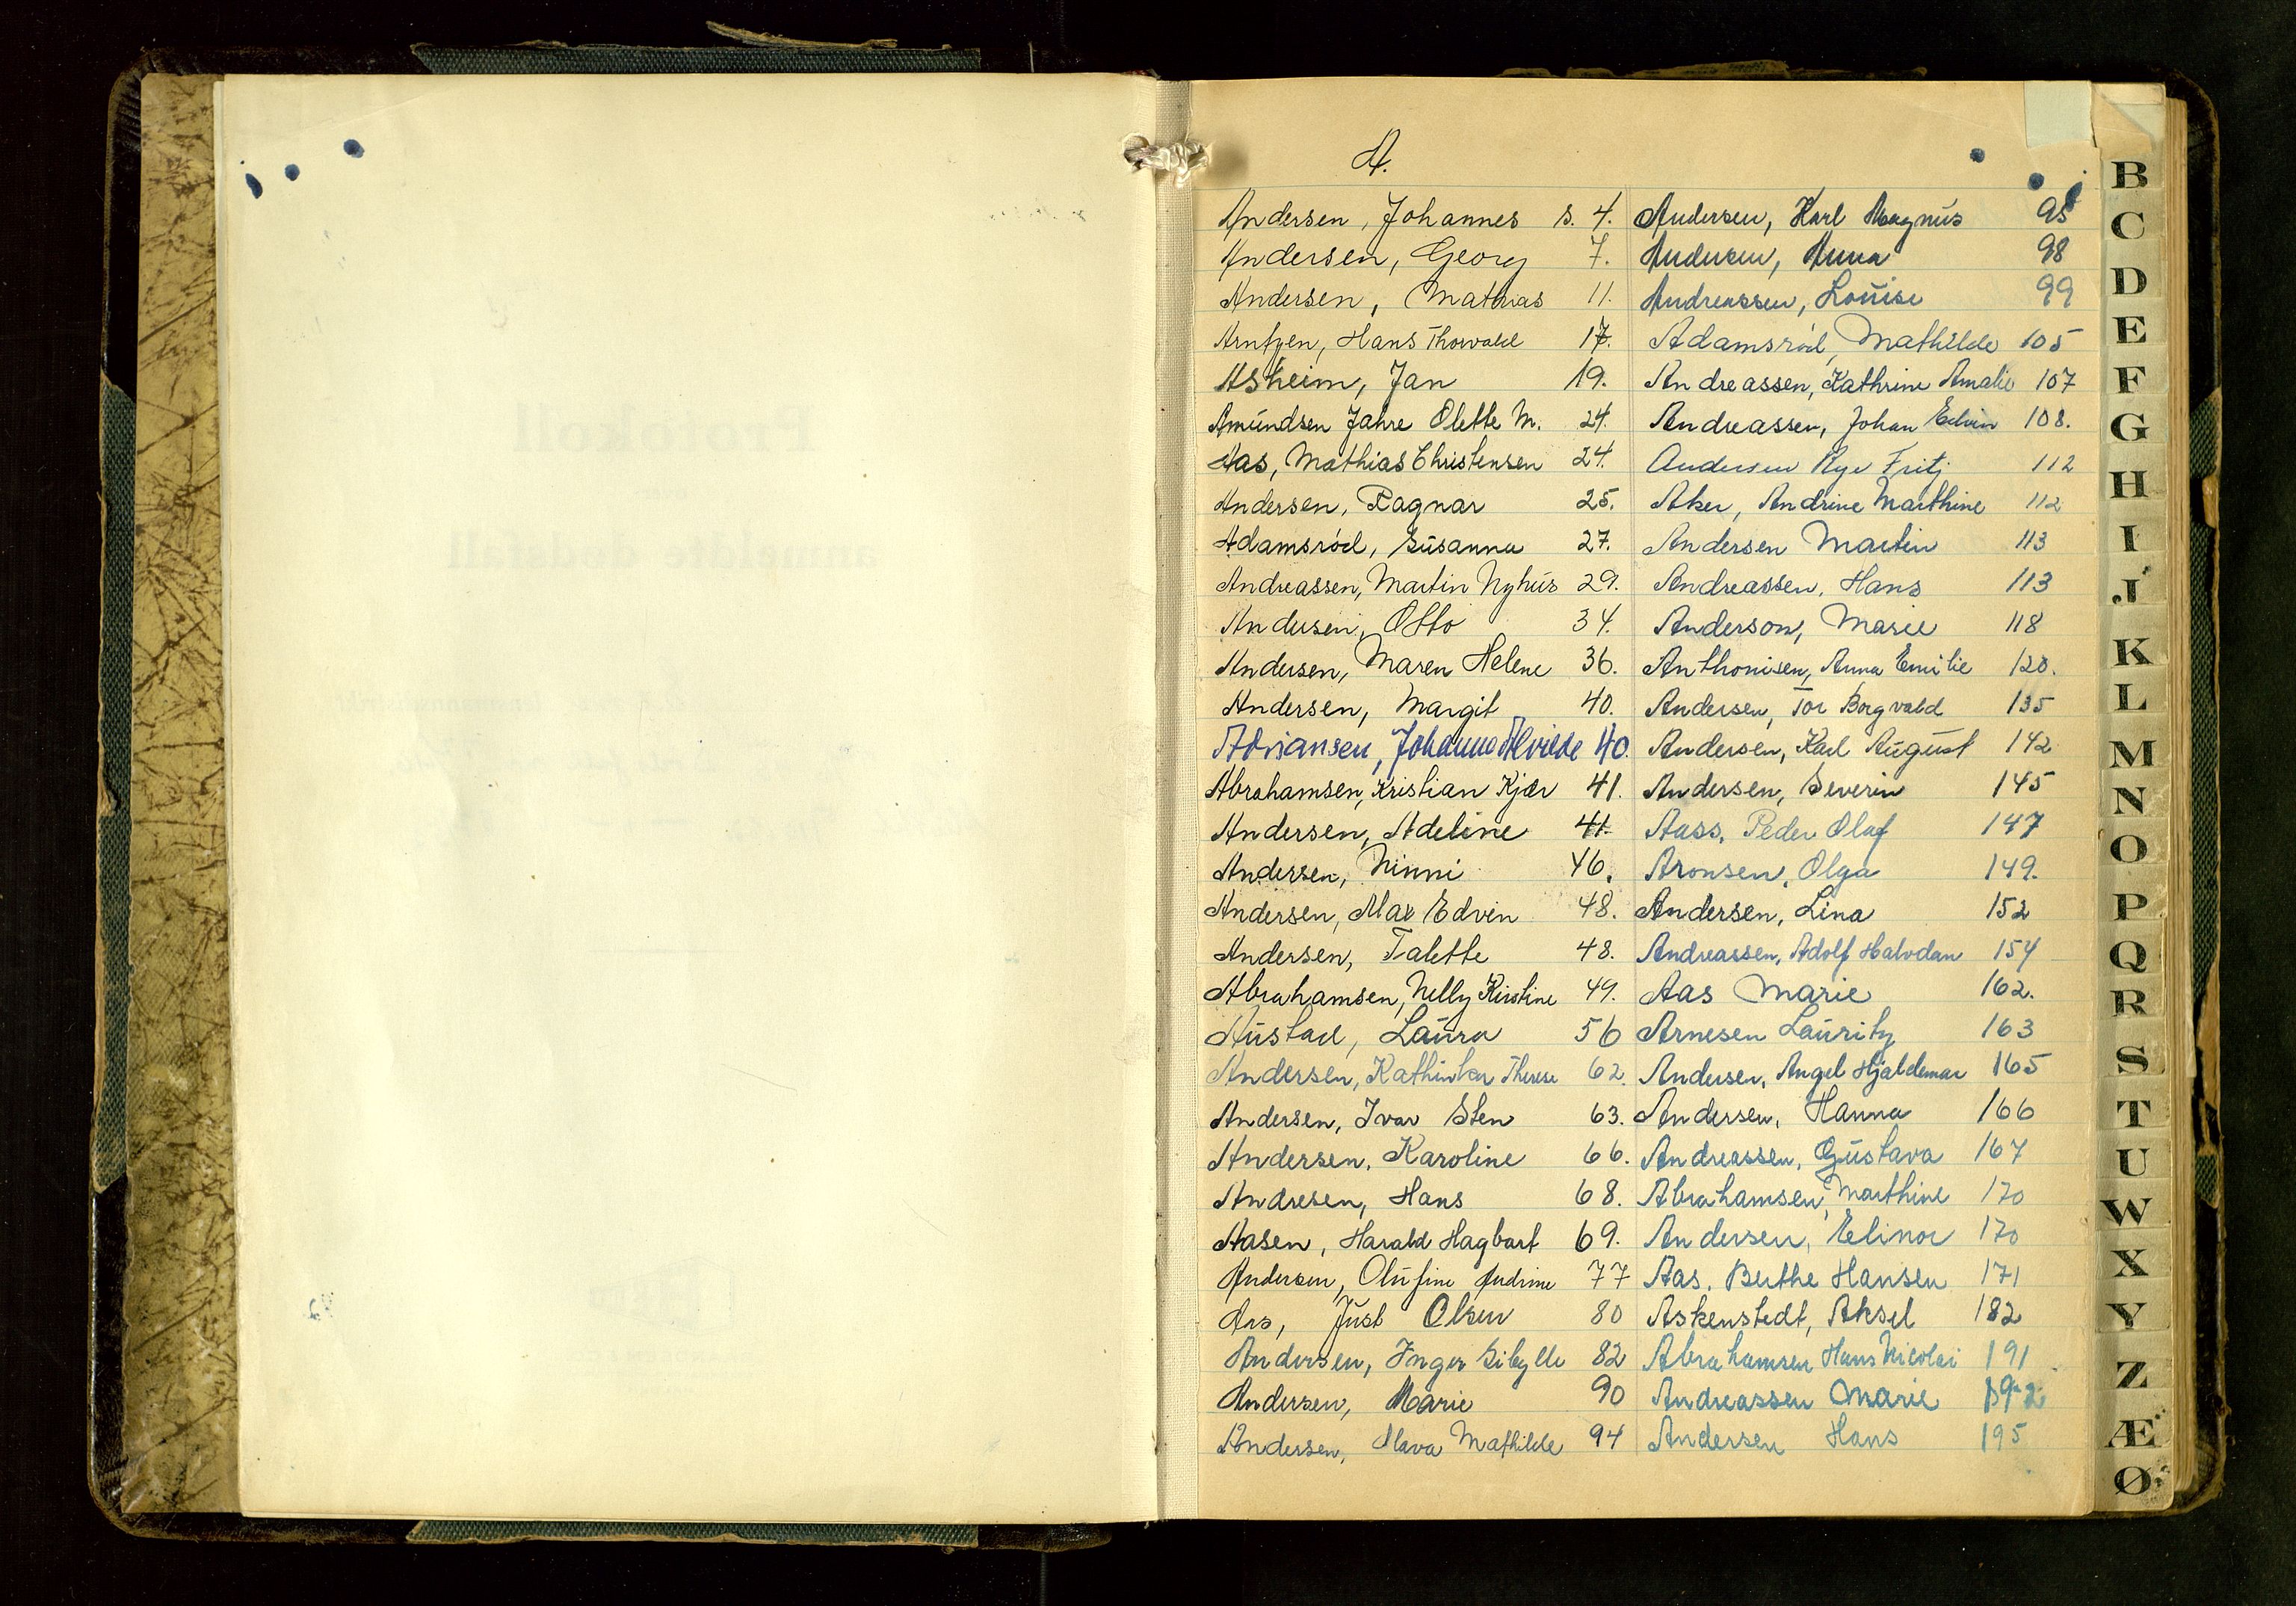 A.
Andersen, Johannes s. 4.
Andersen, Georg 7.
Andersen, Mathias 11.
Arntzen, Hans Thorvald 17.
Åsheim, Jan 19.
Amundsen Jahre Olette M. 24.
Aas, Mathias Christensen 24.
Andersen, Ragnar 25.
Adamsrød, Susanna 27.
Andreassen, Martin Nyhus 29.
Andersen, Otto 34.
Andersen, Maren Helene 36.
Andersen, Margit 40.
Adriansen, Johanne Alvilde 40.
Abrahamsen, Kristian Kjær 41.
Andersen, Adeline 41.
Andersen, Ninni 46.
Andersen, Max Edvin 48.
Andersen, Talette 48.
Abrahamsen, Nelly Kirstine 49.
Austad, Laura 56
Andersen, Kathinka Therese 62.
Andersen, Ivar Sten 63.
Andersen, Karoline 66.
Andresen, Hans 68.
Aasen, Harald Hagbart 69.
Andersen, Olufine Andrine 77
Aas, Just Olsen 80
Andersen, Inger Sibylle 82
Andersen, Marie 90
Andersen, Olava Mathilde 94
Andersen, Karl Magnus 95
Andersen, Anna 98
Andreassen, Louise 99
Adamsrød, Mathilde 105
Andreassen, Kathrine Amalie 107
Andreassen, Johan Edvin 108.
Andersen Rye Fritz 112
Aker, Andrine Marthine 112
Andersen Martin 113
Andreassen, Hans 113
Anderson, Marie 118
Anthonisen, Anna Emilie 120.
Andersen, Tor Borgvald 135
Andersen, Karl August 142
Andersen, Severin 145
Aass, Peder Olaf 147
Aronsen, Olga 149.
Andersen, Lina 152
Andreassen, Adolf Halvdan 154
Aas Marie 162.
Arnesen Lauritz 163
Andersen, Angel Hjaldemar 165
Andersen, Hanna 166
Andreassen, Gustava 167
Abrahamsen, Marthine 170
Andersen, Elinor 170
Aas, Berthe Hansen 171
Askenstedt, Aksel 182
Abrahamsen Hans Nicolai 191
Andreassen Marie 192
Andersen Hans 195
B
C
D
E
F
G
H
I
J
K
L
M
N
O
P
Q
R
S
T
U
W
X
Y
Z
Æ
Ø